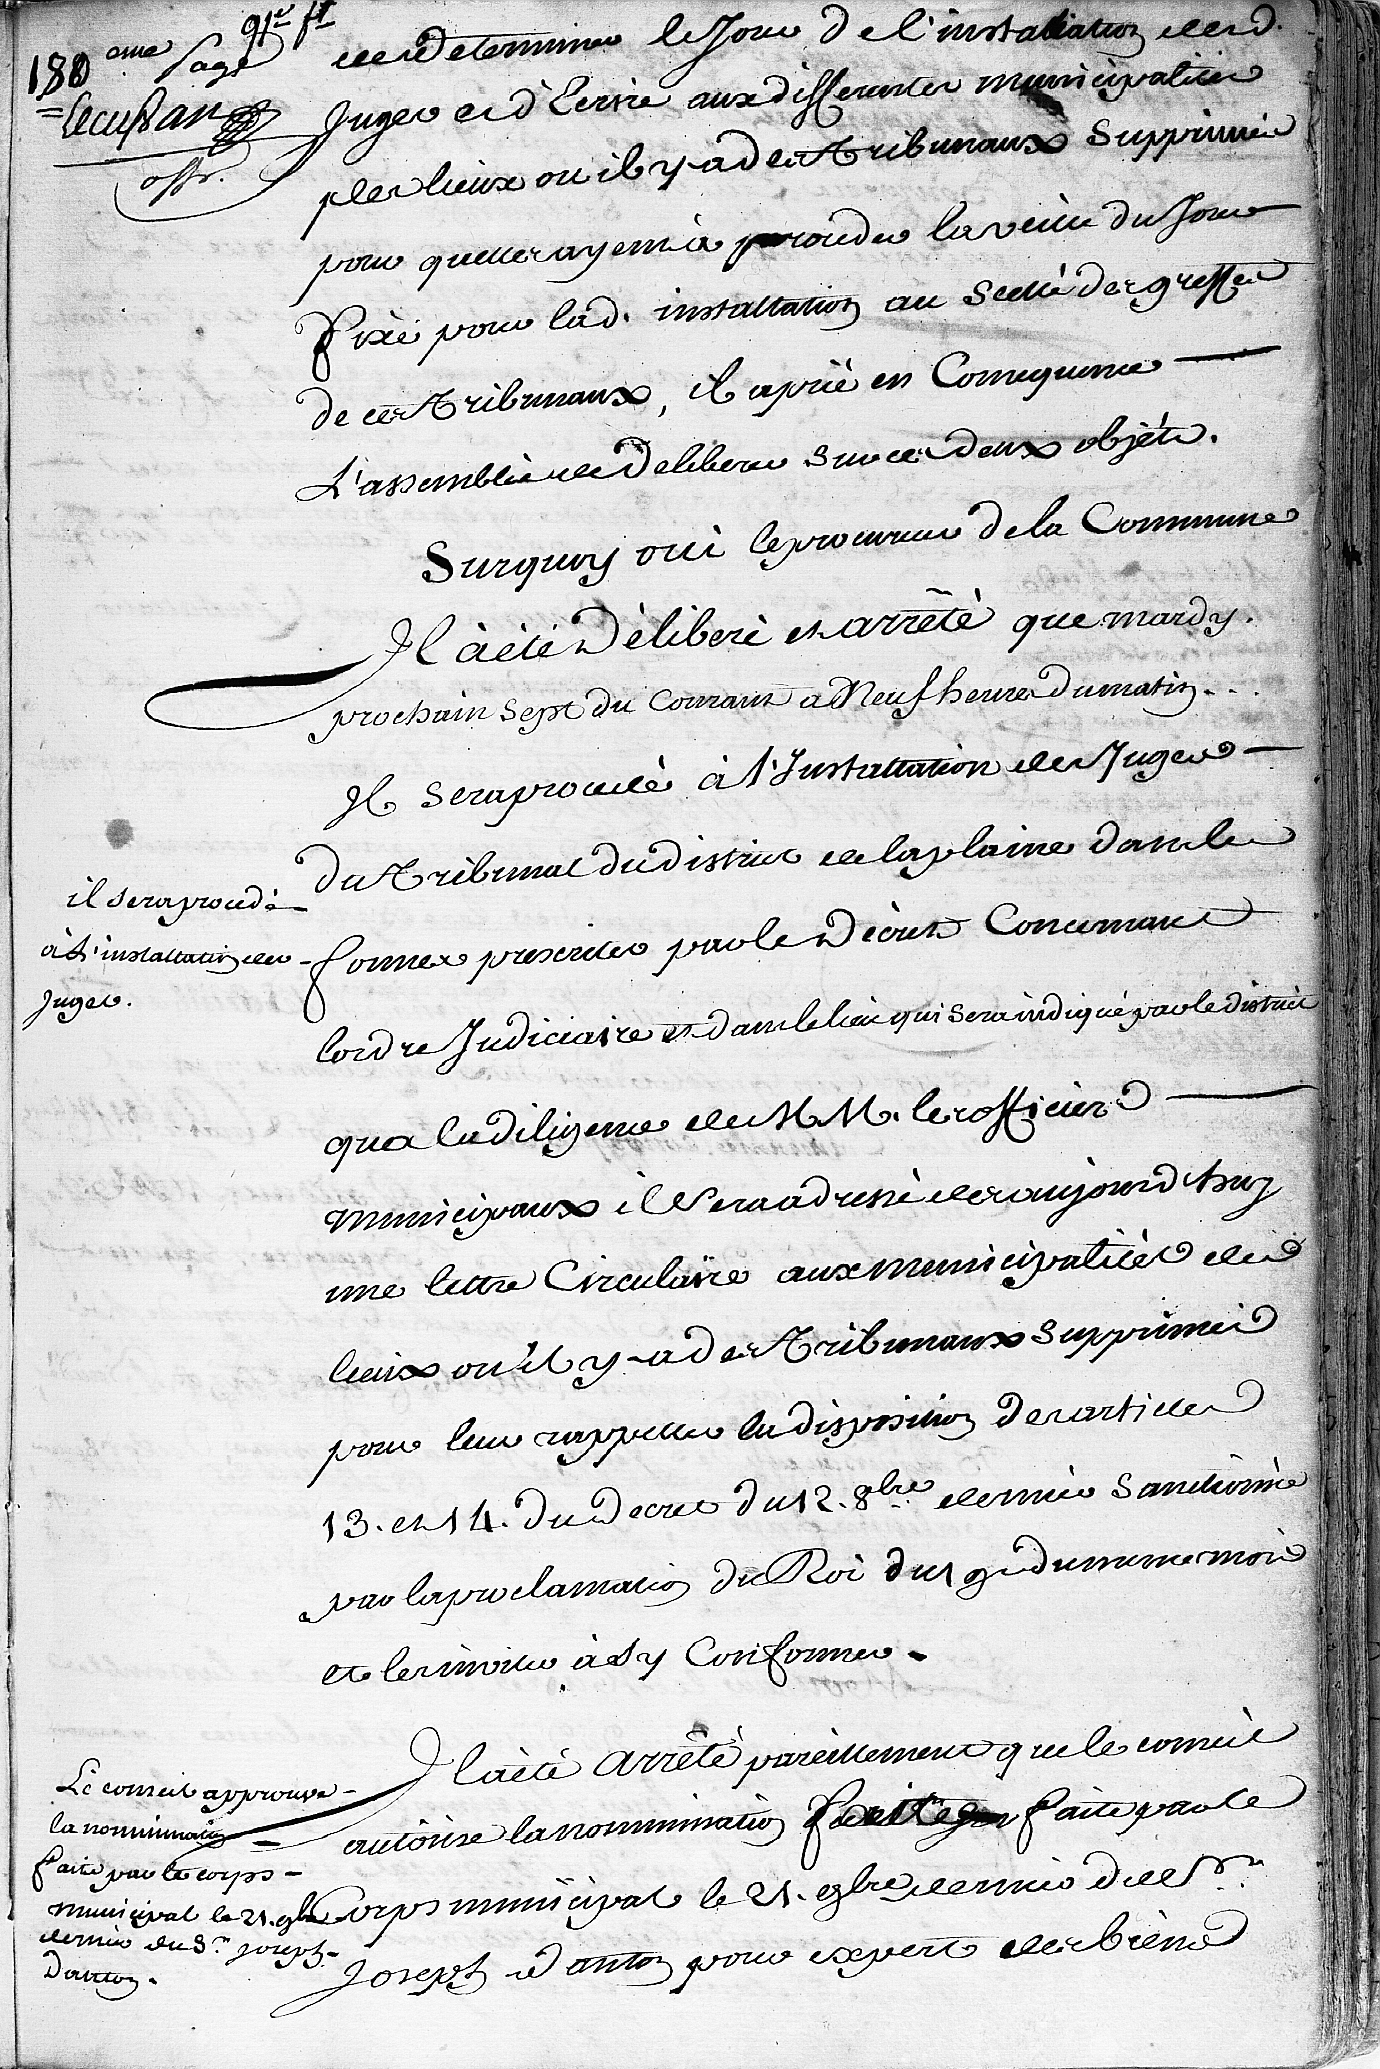 180 eme page
91e ft
Lecussan
offr.
de determiner le Jour de l'installation desd.
Juges et d'Ecrire aux differentes municipalités
des lieux ou il y a des Tribunaux Supprimés
pour quelles ayent à proceder la veille du Jour
fixé pour lad. installation au Scellé des greffes
de ces Tribunaux, il a prié en Consequence
L'assemblée de deliberer sur ces deux objéts.
Surquoy oui le procureur de la Commune
Il à été Déliberé et arrêté que mardy.
prochain sept du Courant a Neuf heures du matin...
Il sera procedé à l'Installation des Juges
du Tribunal du district de la plaine dans les
formes prescrites par les Décrets Concernant
lordre Judiciaire et dans le lieu qui sera indiqué par le district
il sera procedé
à l'installation des
Juges.
qua la diligence de M M. les officiers
municipaux il sera adressé des aujourd'huy
une lettre Circulaire aux municipalités des
lieux ou il y a des Tribunaux supprimés
pour leur rappeller la disposition des articles
13. et 14. du decret du 12. 8bre dernier Sanctionné
par la proclamation du Roi du 19 du meme mois
et les inviter à s'y Conformer.
Il à été arrêté pareillement que le conseil
autorise la nommination faite par le
Corps municipal le 21. 9bre dernier du Sr.
Joseph Danton pour expert des biens
Le conseil approuve
la nommination
faite par le corps
municipal le 21. 9bre
dernier du Sr. Joseph
Danton.